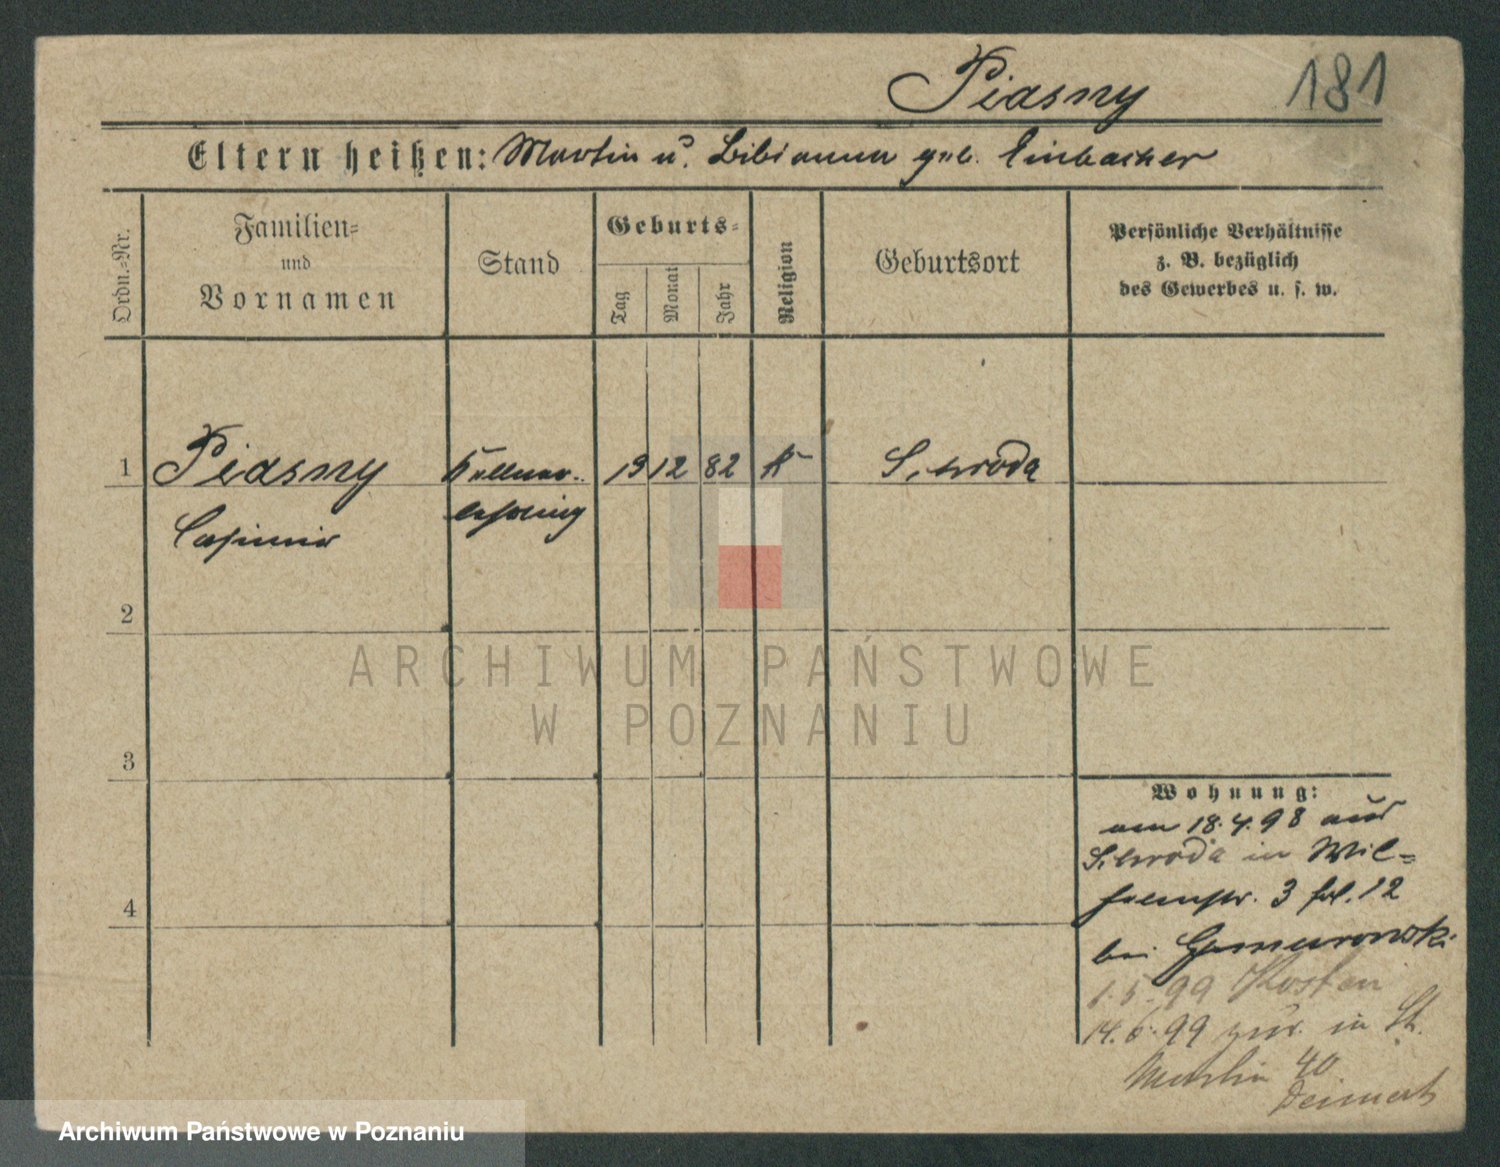 Piasny 181
Eltern heißen: Martin u. Bibianna geb. Einbacher
Ordn.-Nr.
Familien-
und
Vornamen
Stand
Geburts-
Tag
Monat
Jahr
Religion
Geburtsort
Persönliche Verhältnisse
z. B. bezüglich
des Gewerbes u. s. w.
1 Piasny Kellner- 19 12 82 K Schroda
Casimir lehrling
2
3
4
Wohnung:
am 18.4.98 aus
Schroda in Wil-
helmstr. 3 hl. 12
bei
1.5.99 Kosten
14.6.99 zur. in St.
Martin 40
ARCHIWUM PAŃSTWOWE
W POZNANIU
Archiwum Państwowe w Poznaniu